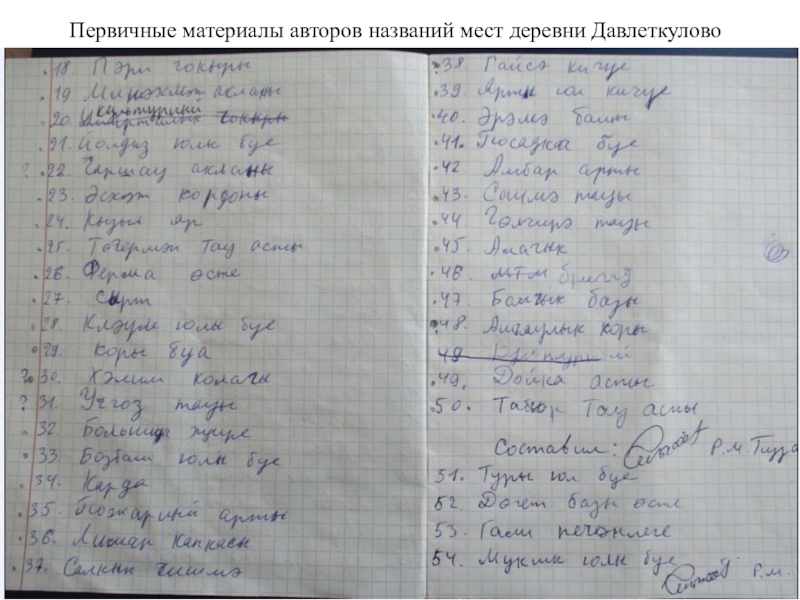 Первичные материалы авторов названий мест деревни Давлеткулово
18. Пәри чокыры
19 Минәхмәт акланы
20 культурный чокыры
21. Йолдыз юлы буе
? 22. Чаршау акланы
23. Әсхәт кордоны
24. Кызыл яр
25. Тегермән тау асты
26. Ферма өсте
27. Сырт
28. Кләүле юлы буе
29. Коры буа
? 30. Хәлим колагы
? 31. Учгоз тавы
32. Больница
33. Бозбаш юлы буе
34. Карда
35. Пожарный арты
36. Лимар капкасы
37. Салкын чишмә
? 38. Гайсә кичүе
39. Арты юл кичүе
40. Әрәмә балы
41. Посадка буе
42 Амбар арты
43. Салмә тавы
44. Гөлчирә тавы
45. Алачык
46. МТМ бригад
47. Башык базы
? 48. коры
49
49. Дойка асты
50. Табор Тау асты
Составил: Р.М.
51. Туры юл буе
52. Дегет базы өсте
53. Гали печәнлеге
54. Муклы юлы буе
Р.М.